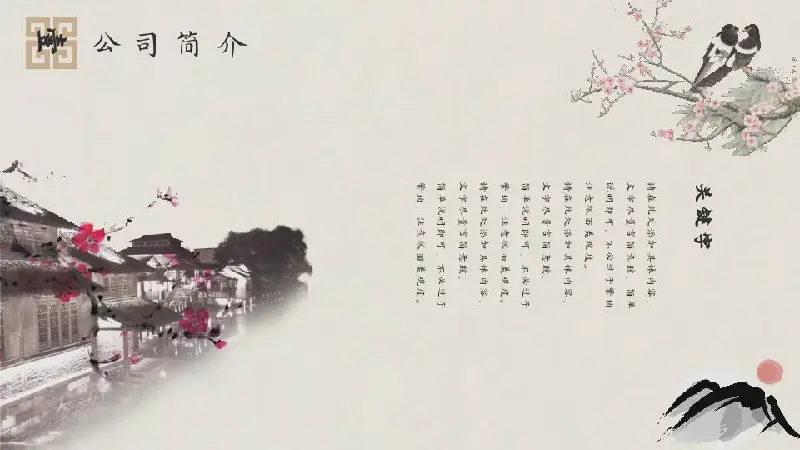 壹
公司简介
关键字
请在此处添加具体内容，
文字尽量言简意赅，简单
说明即可，不必过于繁琐
注意版面美观度。
请在此处添加具体内容，
文字尽量言简意赅，
简单说明即可，不必过于
繁琐，注意版面美观度。
请在此处添加具体内容，
文字尽量言简意赅，
简单说明即可，不必过于
繁琐，注意版面美观度。